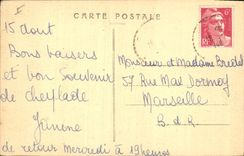 CARTE POSTALE
15 Aout
Bons baisers
et bon souvenir
de cheylade
Janine
de retour Mercredi à 19 heures
Monsieur et Madame
57 Rue Max Dormoy
Marseille
B. d. R.